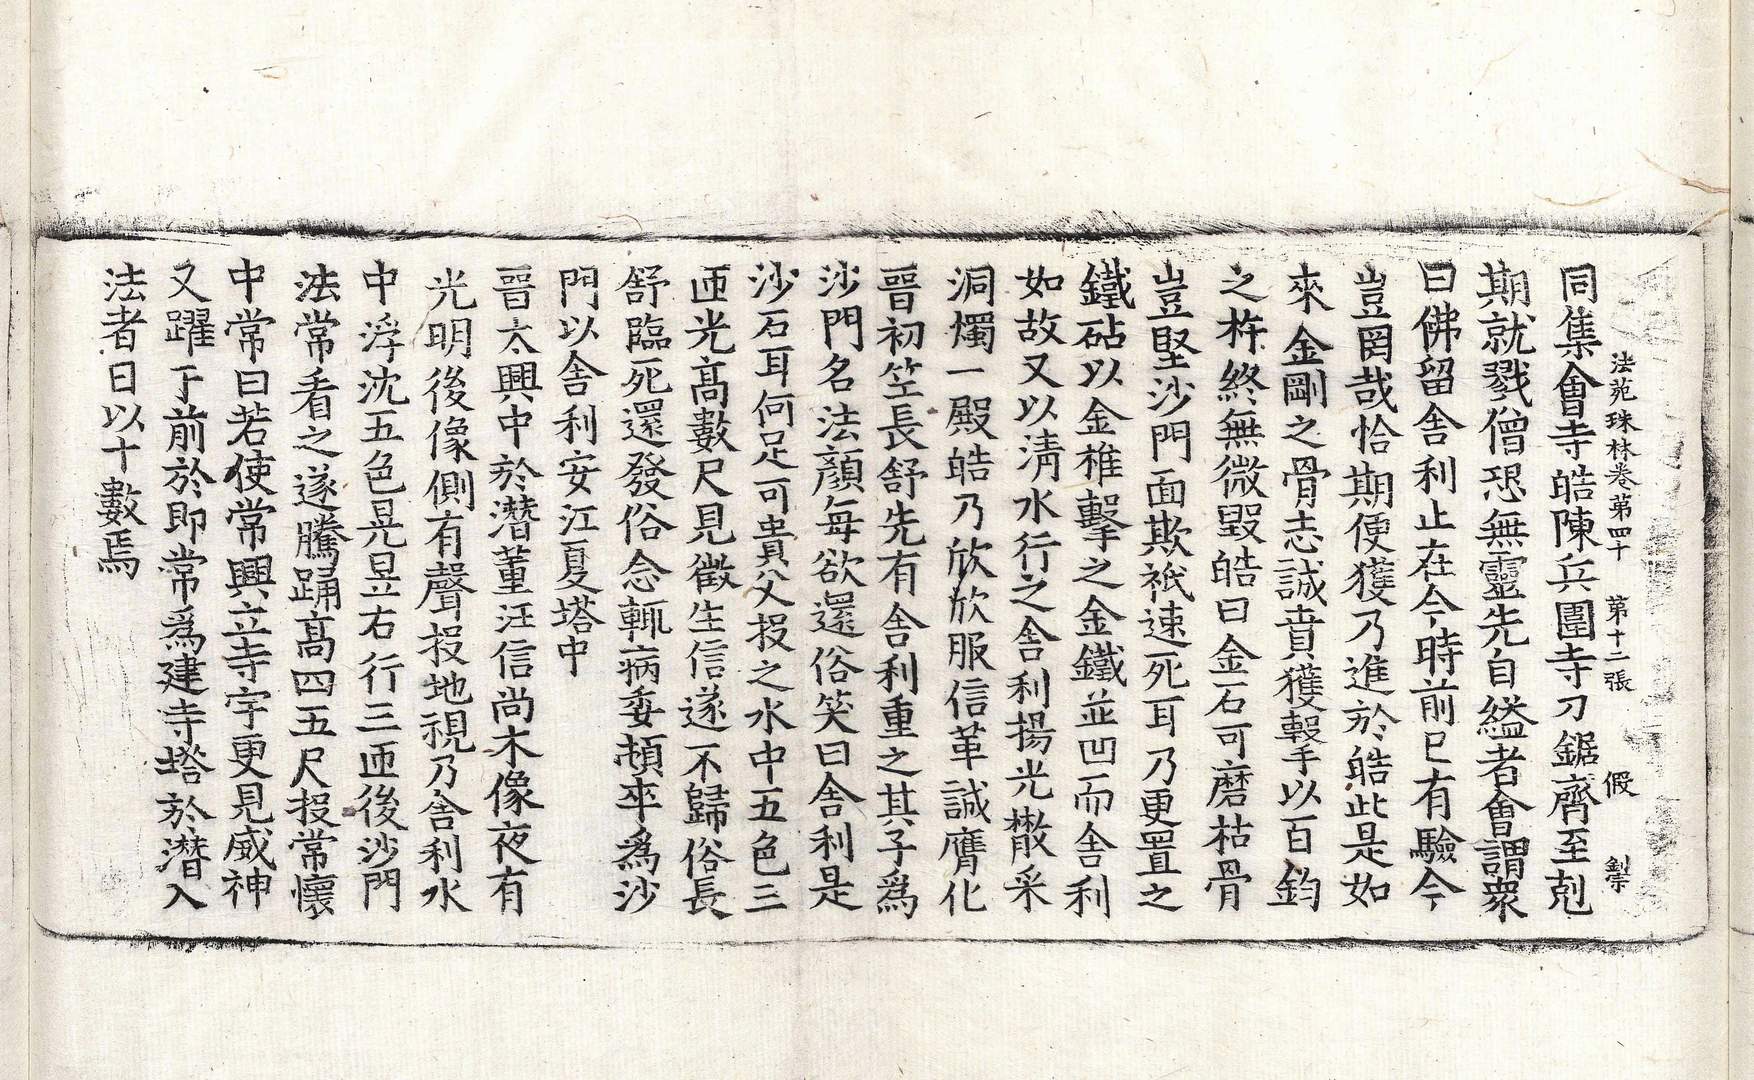 法苑珠林卷第四十　第十二張　假　㓼
同集會寺皓陳兵圍寺刀鋸齊至剋
期就戮僧恐無靈先自縊者會謂衆
曰佛留舍利止在今時前已有驗今
豈罔哉恰期便獲乃進於皓此是如
來金剛之骨志誠賁獲轂手以百鈞
之杵終無微毀皓曰金石可磨枯骨
豈堅沙門面欺祇速死耳乃更置之
鐵砧以金椎擊之金鐵並凹而舍利
如故又以淸水行之舍利揚光散采
洞燭一殿皓乃欣欣服信革誠膺化
晉初笁長舒先有舍利重之其子爲
沙門名法顏每欲還俗笑曰舍利是
沙石耳何足可貴父投之水中五色三
匝光高數尺見徵生信遂不歸俗長
舒臨死還發俗念輒病委頓卒爲沙
門以舍利安江夏塔中
晉太興中於潛董汪信尚木像夜有
光明後像側有聲投地視乃舍利水
中浮沈五色晃昱右行三匝後沙門
法常看之遂騰踊高四五尺投常懷
中常曰若使常興立寺宇更見威神
又躍于前於即常爲建寺塔於潛入
法者日以十數焉